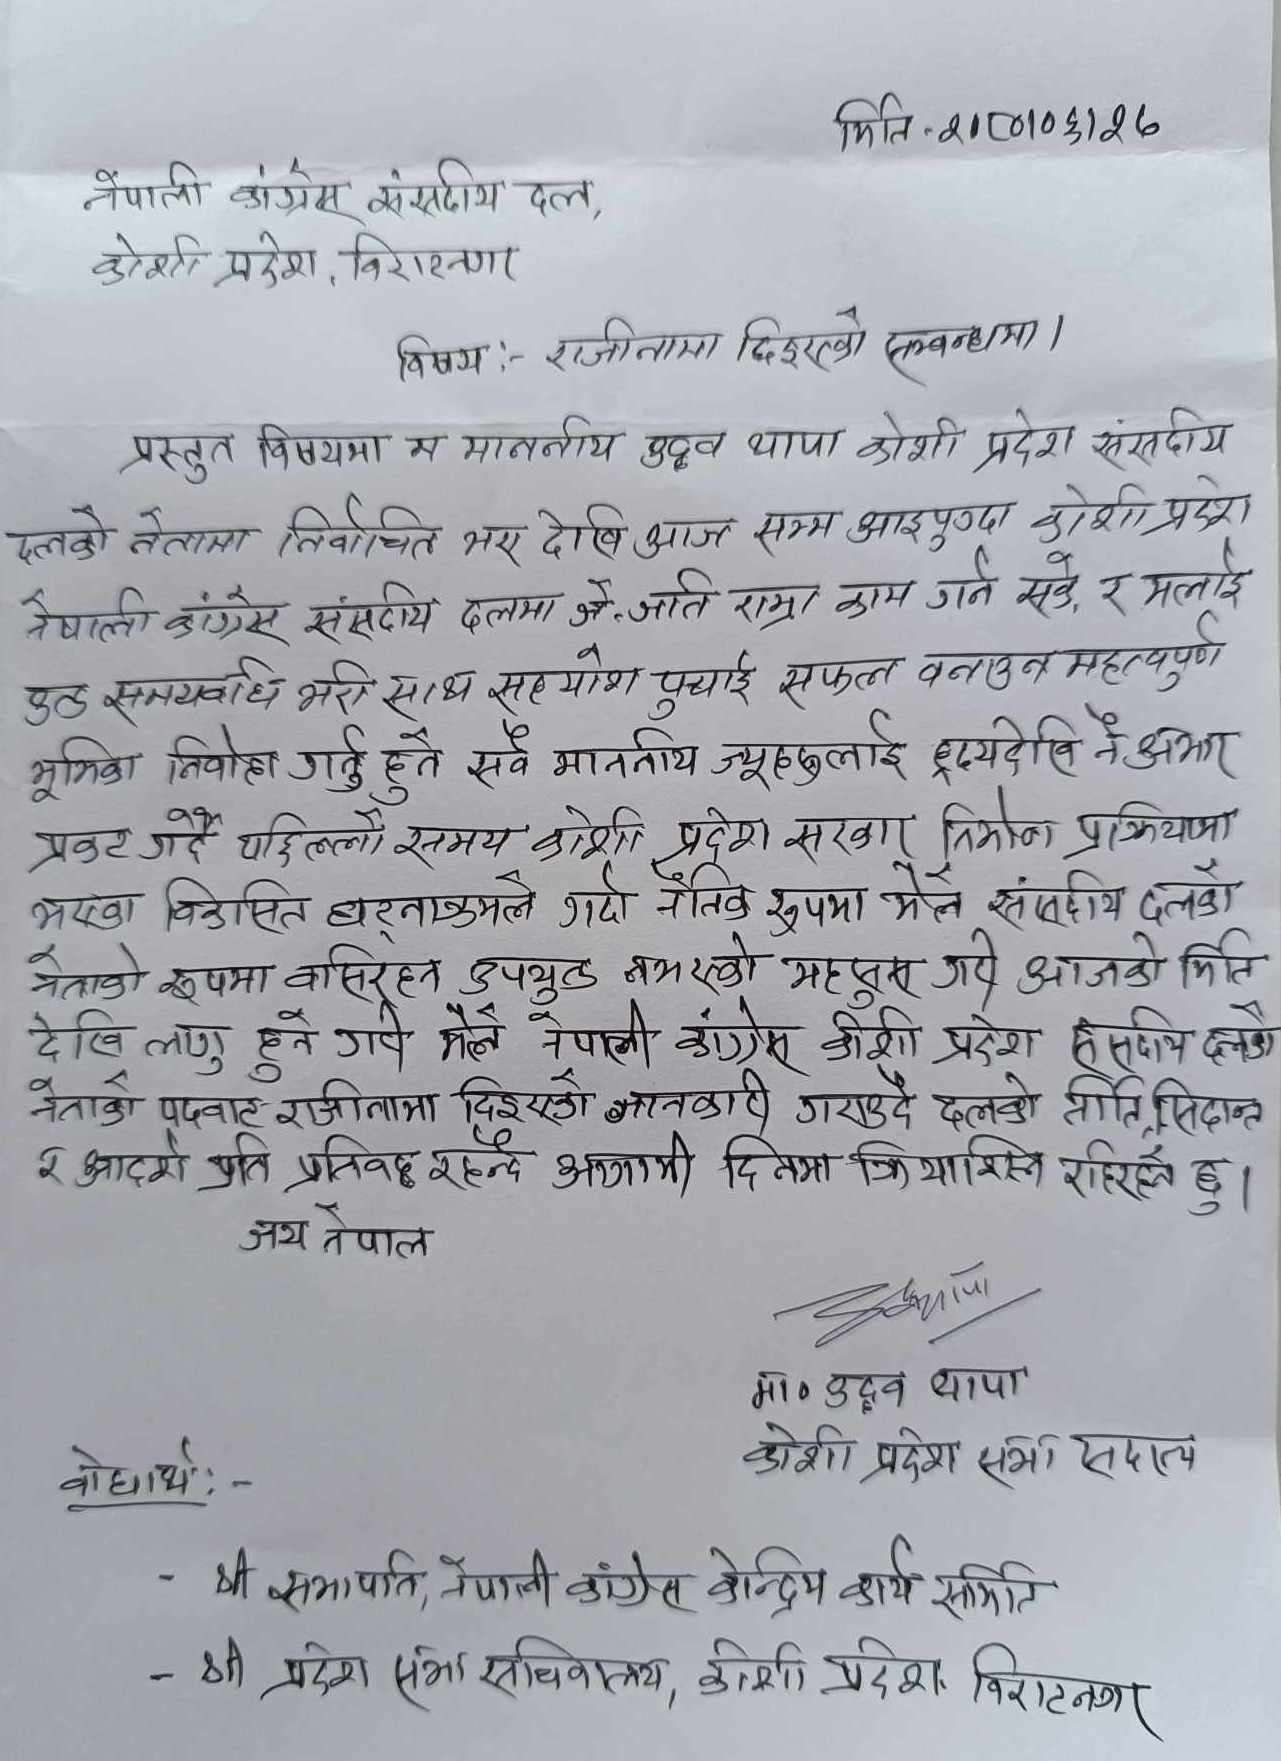 मिति - २०८०।०६।२७
नेपाली कांग्रेस संसदीय दल,
कोशी प्रदेश, विराटनगर
विषय :- राजीनामा दिइएको सम्वन्धमा।
प्रस्तुत विषयमा म माननीय उद्धव थापा कोशी प्रदेश संसदीय
दलको नेतामा निर्वाचित भए देखि आज सम्म आइपुग्दा कोशी प्रदेश
नेपाली कांग्रेस संसदीय दलमा जे.जति राम्रा काम गर्न सकें, र मलाई
उक्त समयवधि भरी साथ सहयोग पुर्‍याई सफल वनाउन महत्वपुर्ण
भूमिका निर्वाहा गर्नु हुने सवै माननीय ज्यूहरुलाई ह्रदयदेखि नै आभार
प्रकट गर्दै पछिल्लो समय कोशी प्रदेश सरकार निर्माण प्रक्रियामा
भएका विकासित घट्नाक्रमले गर्दा नैतिक रुपमा मैले संसदीय दलको
नेताको रुपमा वसिरहन उपयुक्त नभएको महसुस गरी आजको मिति
देखि लागु हुने गरी मैले नेपाली कांग्रेस कोशी प्रदेश संसदीय दलको
नेताको पदवाट राजीनामा दिइएको जानकारी गराउदै दलको नीति, सिदान्त
र आदर्श प्रति प्रतिवद्ध रहन्दै आगामी दिनमा क्रियाशिल रहिरहने छु।
जय नेपाल
मा० उद्धव थापा
कोशी प्रदेश सभा सदस्य
वोधार्थ :-
- श्री सभापति, नेपाली कांग्रेस केन्द्रिय कार्य समिति
- श्री प्रदेश सभा सचिवालय, कोशी प्रदेश विराटनगर